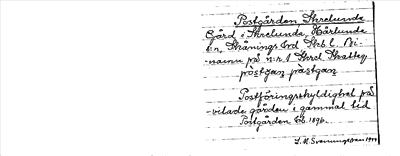 Postgården Skrelunda
Gård i Skrelunda, Hårlunda
sn, Skånings hd Skb l. Bi-
namn på nr 1 Skrel Skatteg
pòstgaɳ pàstgan
Postföringsskyldighet på-
vilade gården i gammal tid
Postgården EK. 1896.
S. M. Svenungsson 1944